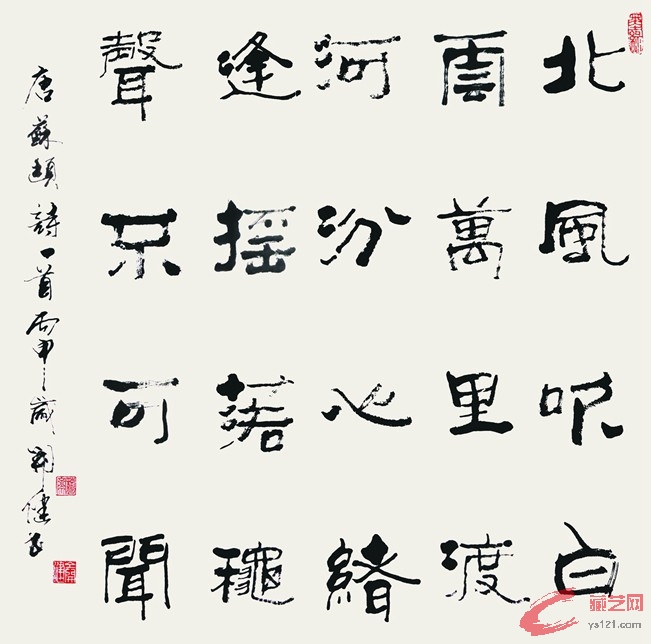 北風吹白
雲萬里渡
河汾心緒
逢摇落穐
聲不可聞
唐蘇頲詩一首丙申之歲健書
藏艺网
ys121.com